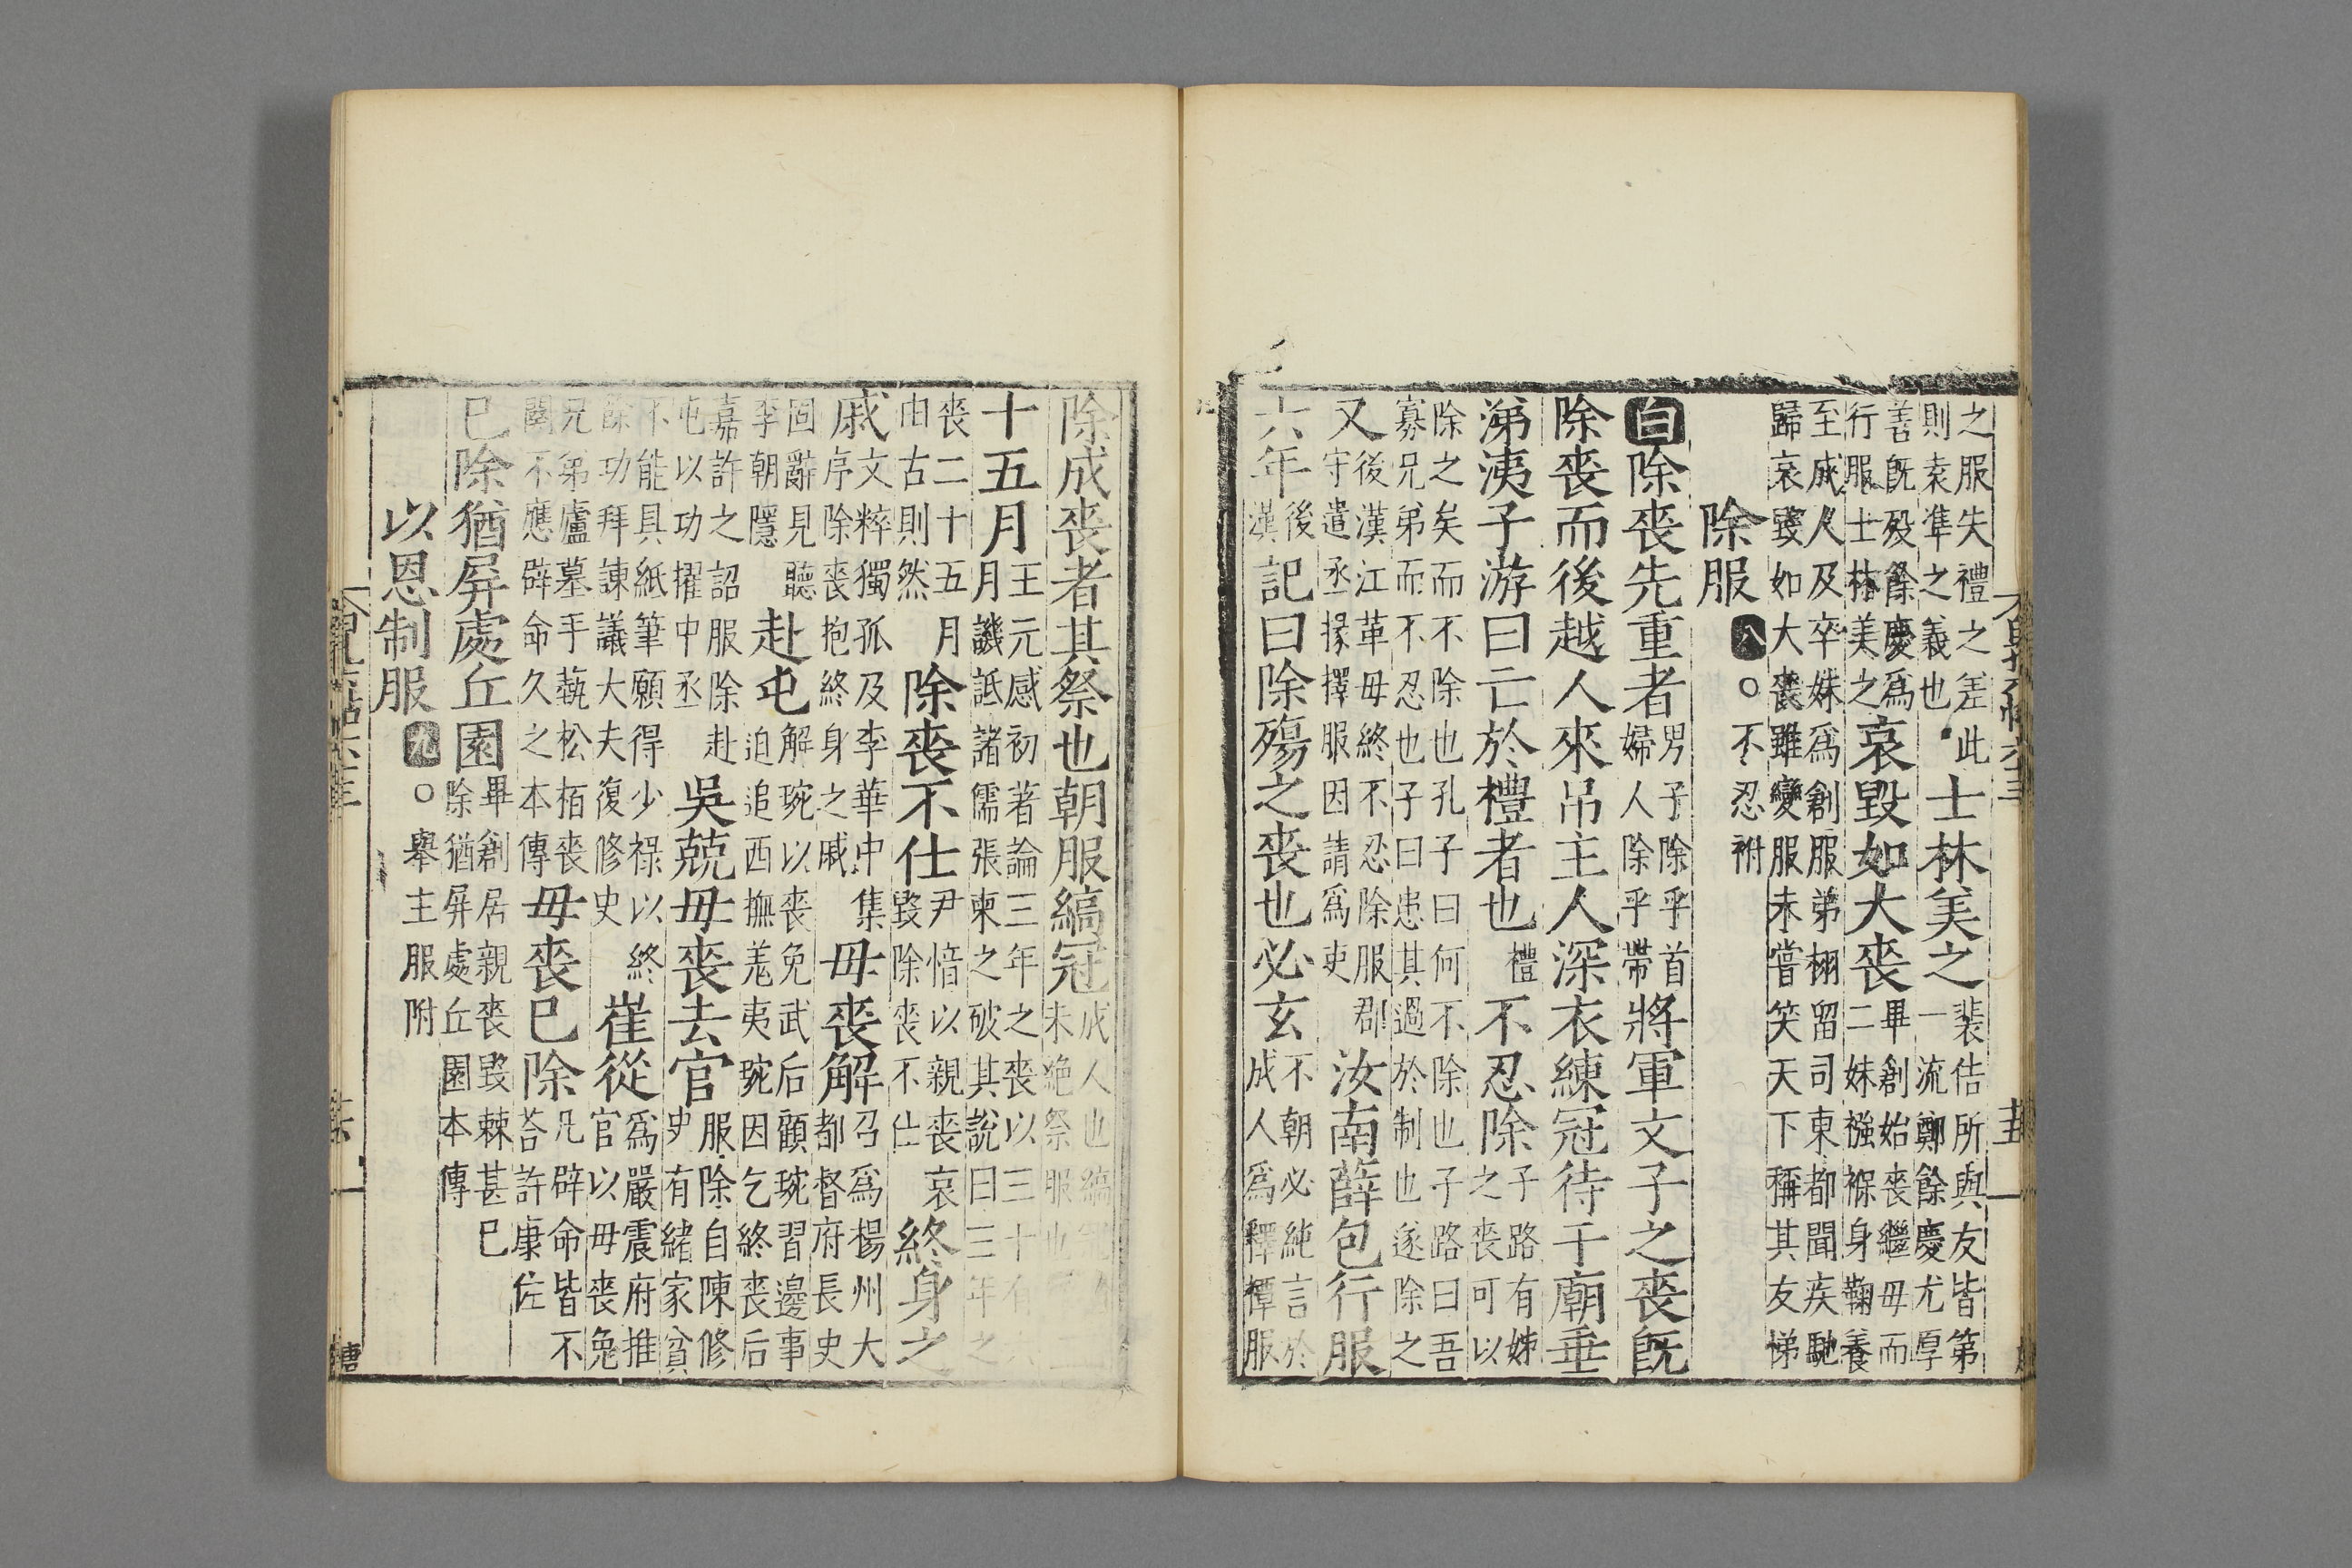 之服失禮之差此則衰準之義也士林美之裴佶所與友皆第一流鄭餘慶尤厚
善旣歿餘慶爲行服士林美之哀毀如大喪畢創始喪繼母而二妹襁褓身鞠養
至成人及卒妹爲創服弟栩留司東都聞疾馳歸哀毀如大喪雖變服未嘗笑天下稱其友悌
除服八○不忍祔
白除喪先重者男子除乎首婦人除乎帶將軍文子之喪旣
除喪而後越人來吊主人深衣練冠待于廟垂
涕洟子游曰亡於禮者也禮不忍除子路有姊之喪可以
除之矣而不除也孔子曰何不除也子路曰吾寡兄弟而不忍也子曰患其過於制也遂除之
又後漢江革母終不忍除服郡守遣丞掾擇服因請爲吏汝南薛包行服
六年後漢記曰除殤之喪也必玄不朝必純言於成人爲釋禫服
除成喪者其祭也朝服縞冠成人也縞未純祭服也
十五月王元感初著論三年之喪以三十有月譏詆諸儒張柬之破其說曰三年之
喪二十五月由古則然除喪不仕尹愔以親喪哀毀除喪不仕終身之
戚文粹獨孤及李華中集序除喪抱終身之戚母喪解召爲楊州大都督府長史
固辭見聽李朝隱赴屯解琬以喪免武后顧琬習邊事迫追西撫羌夷琬因乞終喪后
嘉許之詔服除赴屯以功擢中丞吳兢母喪去官服除自陳修史有緒家貧
不能具紙筆願得少祿以終餘功拜諫議大夫復修史崔從爲嚴震府推官以毋喪免
兄弟廬墓手蓺松栢喪闋不應辟命久之本傳毋喪已除凡辟命皆不荅許康佐
已除猶屏處丘園畢創居親喪毀棘甚已除猶屏處丘園本傳
以恩制服九○舉主服附